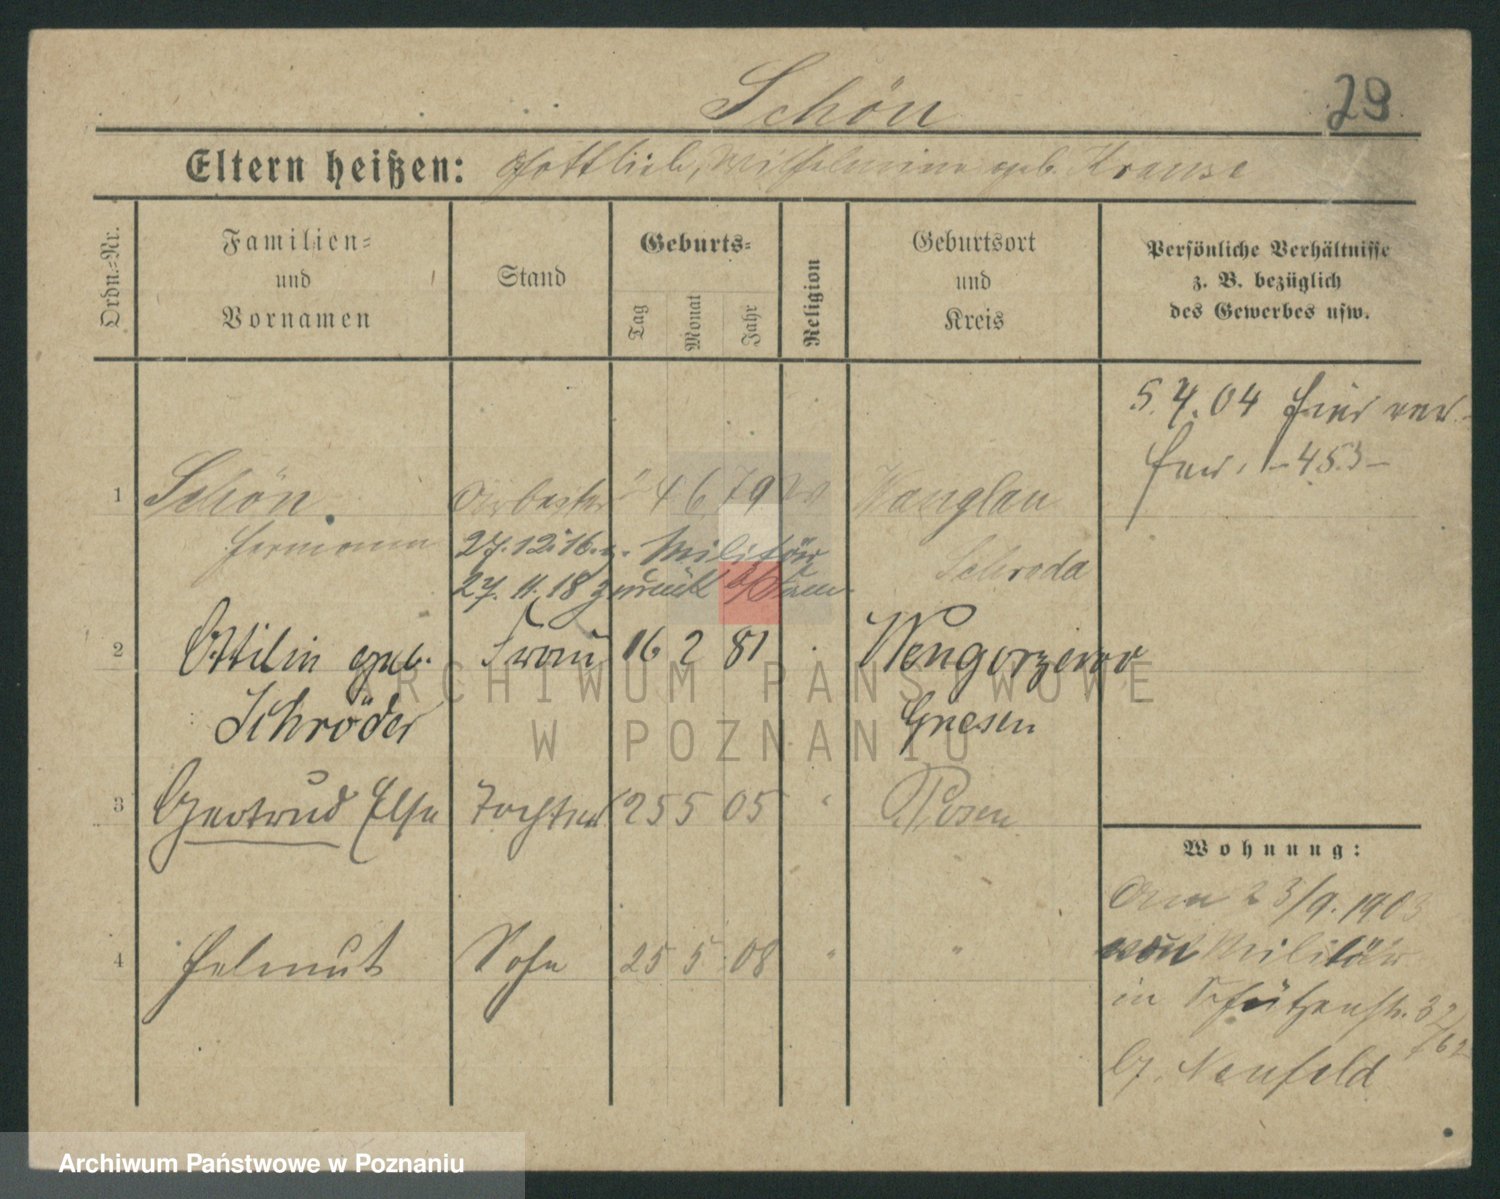 Schön
29
Eltern heißen: Gottlieb, Wilhelmine geb. Krause
Ordn.=Nr.
Familien=
und
Vornamen
Stand
Geburts=
Tag
Monat
Jahr
Religion
Geburtsort
und
Kreis
Persönliche Verhältnisse
z. B. bezüglich
des Gewerbes usw.
5.7.04 hier
-453-
1 Schön Arbeiter 4 6 79
Hermann
Schroda
27.12.16. z. Militär
27.11.18 zurück
2 Ottilie geb. Frau 16 2 81
Schröder Gnesen
3 Gertrud Else Tochter 25 5 05 " Posen
4 Helmut Sohn 25 5 08 " "
Wohnung:
Am 23/9. 1903
von Militär
in Schützenstr. 32
b/. Neufeld
ARCHIWUM PAŃSTWOWE
W POZNANIU
Archiwum Państwowe w Poznaniu